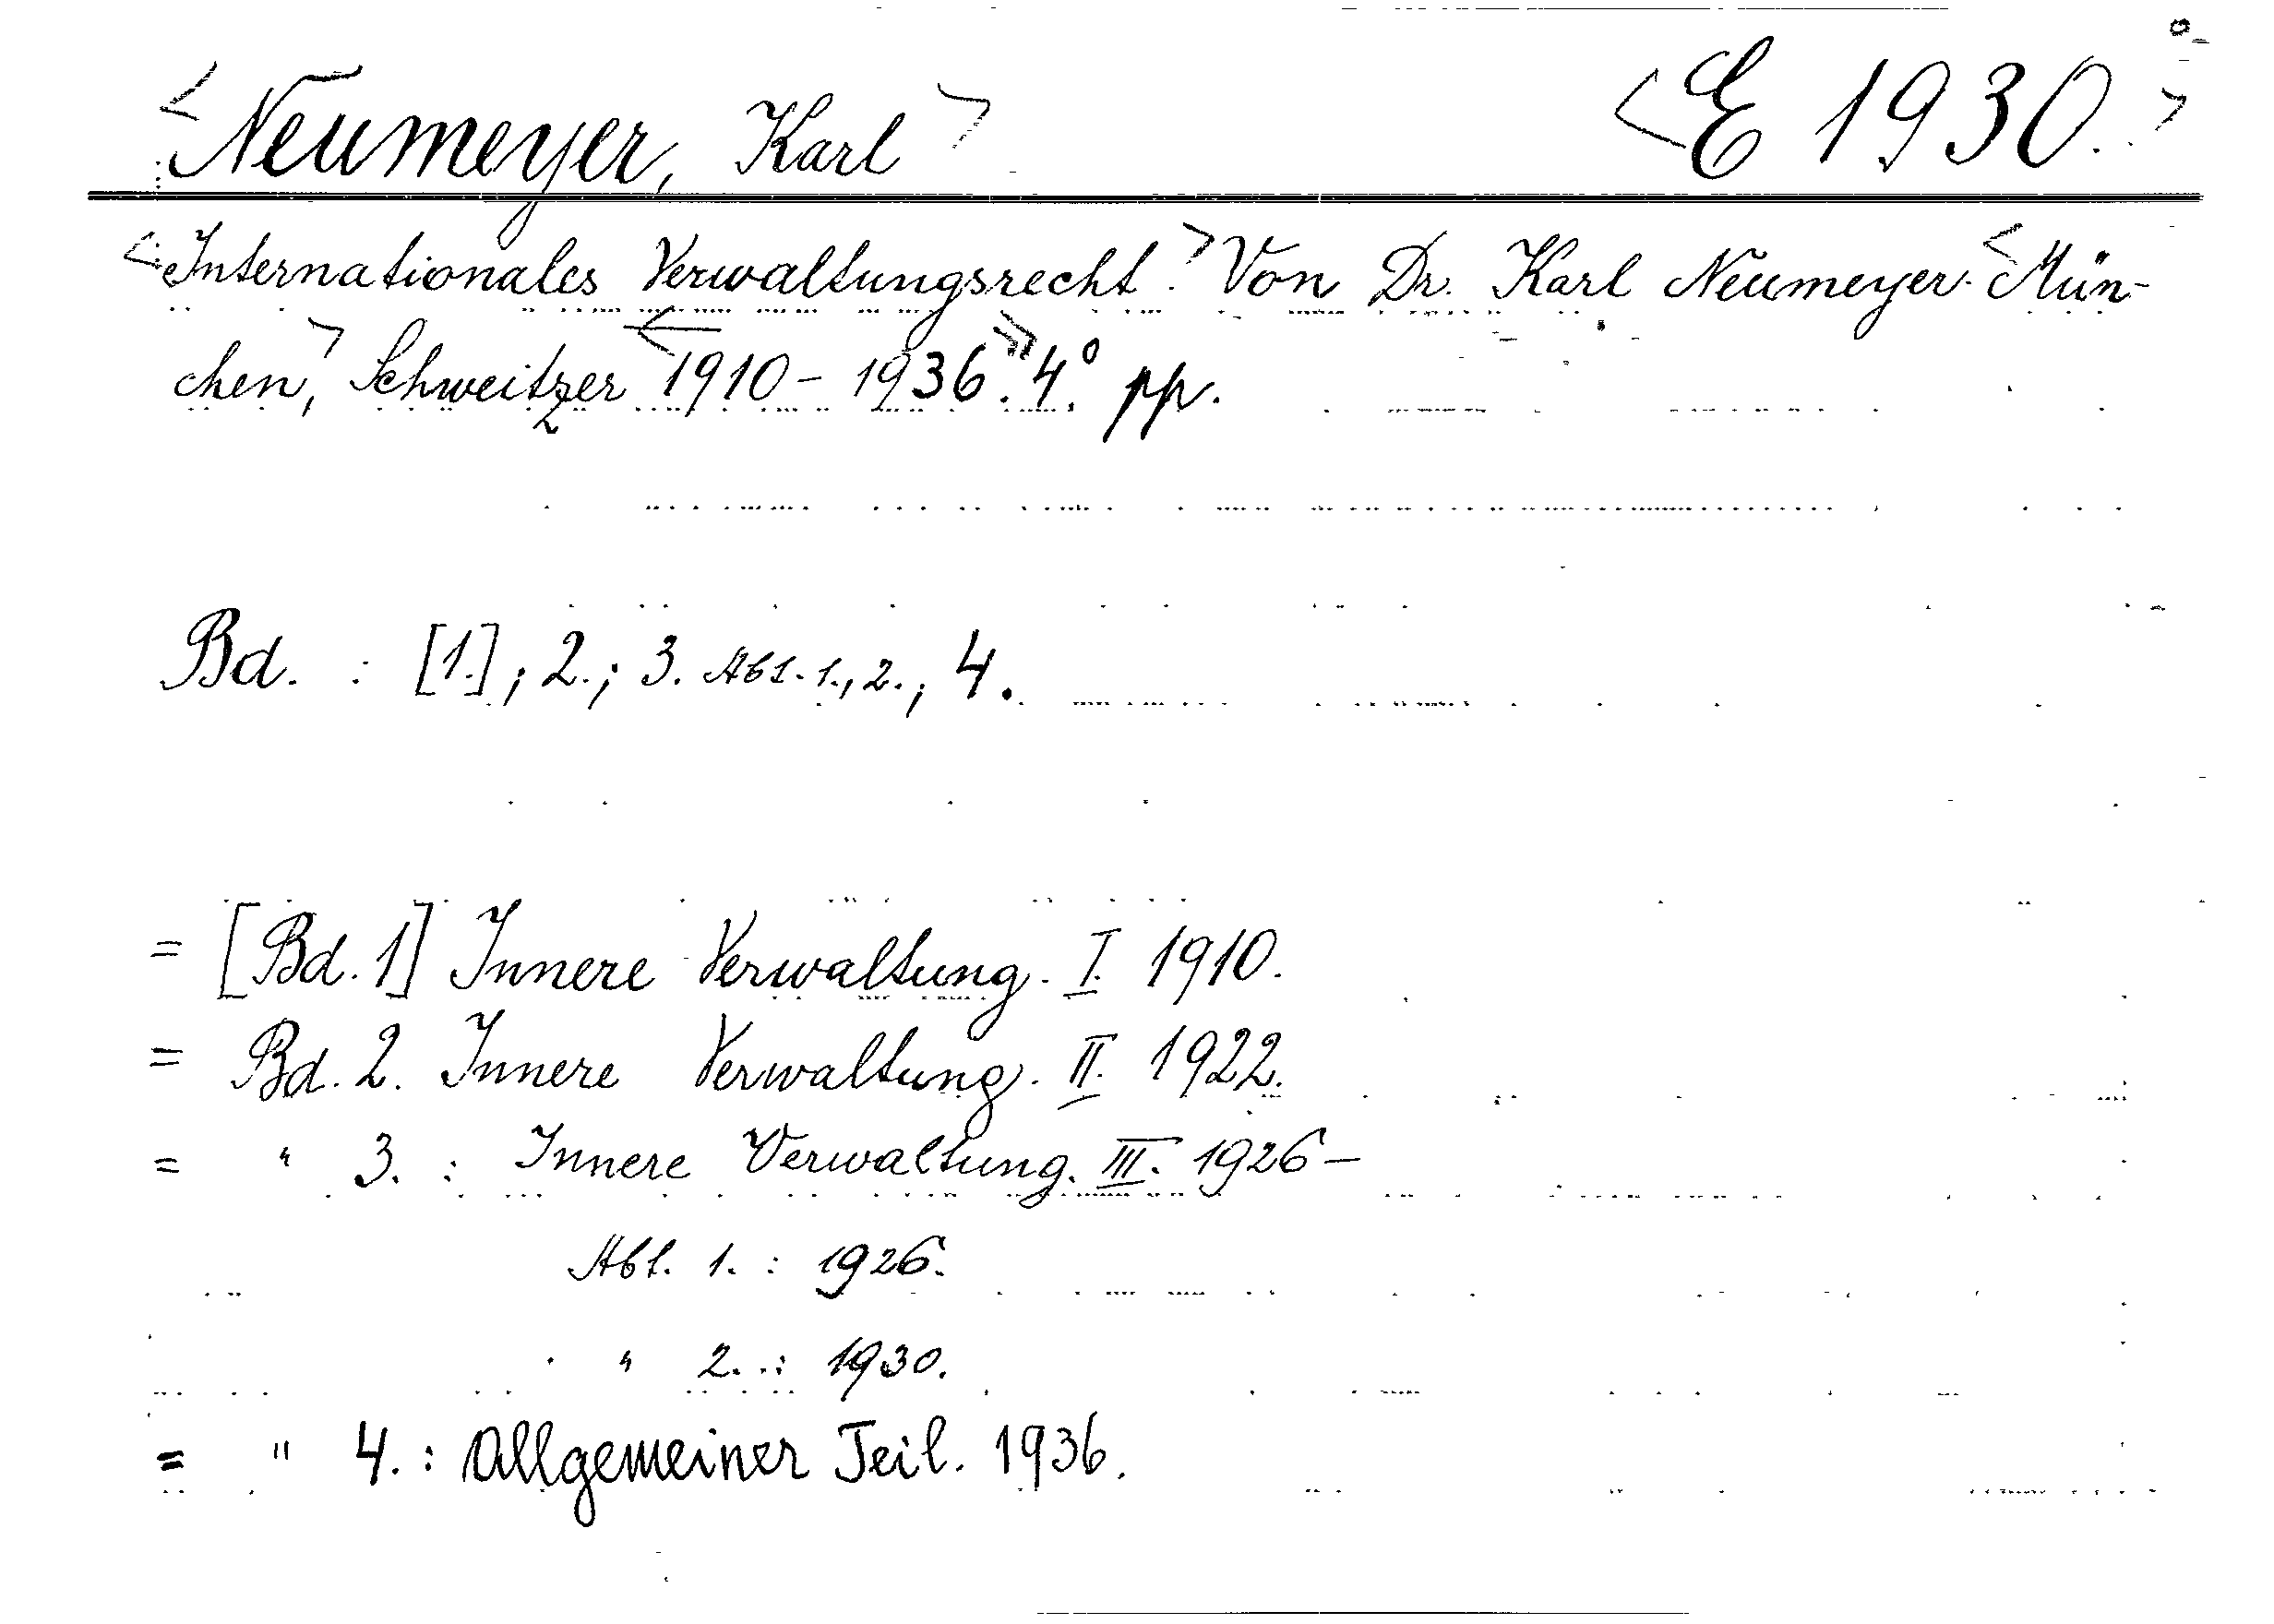 <Neumeyer, Karl> <E 1930.>
<Internationales Verwaltungsrecht.> Von Dr. Karl Neumeyer. <Mün-
chen,> Schweitzer <1910-1936.>> 4.° pp.
Bd. : [1.]; 2.; 3. Abt. 1., 2.; 4.
= [Bd. 1] Innere Verwaltung. I. 1910.
= Bd. 2. Innere Verwaltung. II. 1922.
= " 3. : Innere Verwaltung. III. 1926-
Abt. 1. : 1926.
" 2. : 1930.
= " 4. : Allgemeiner Teil. 1936.